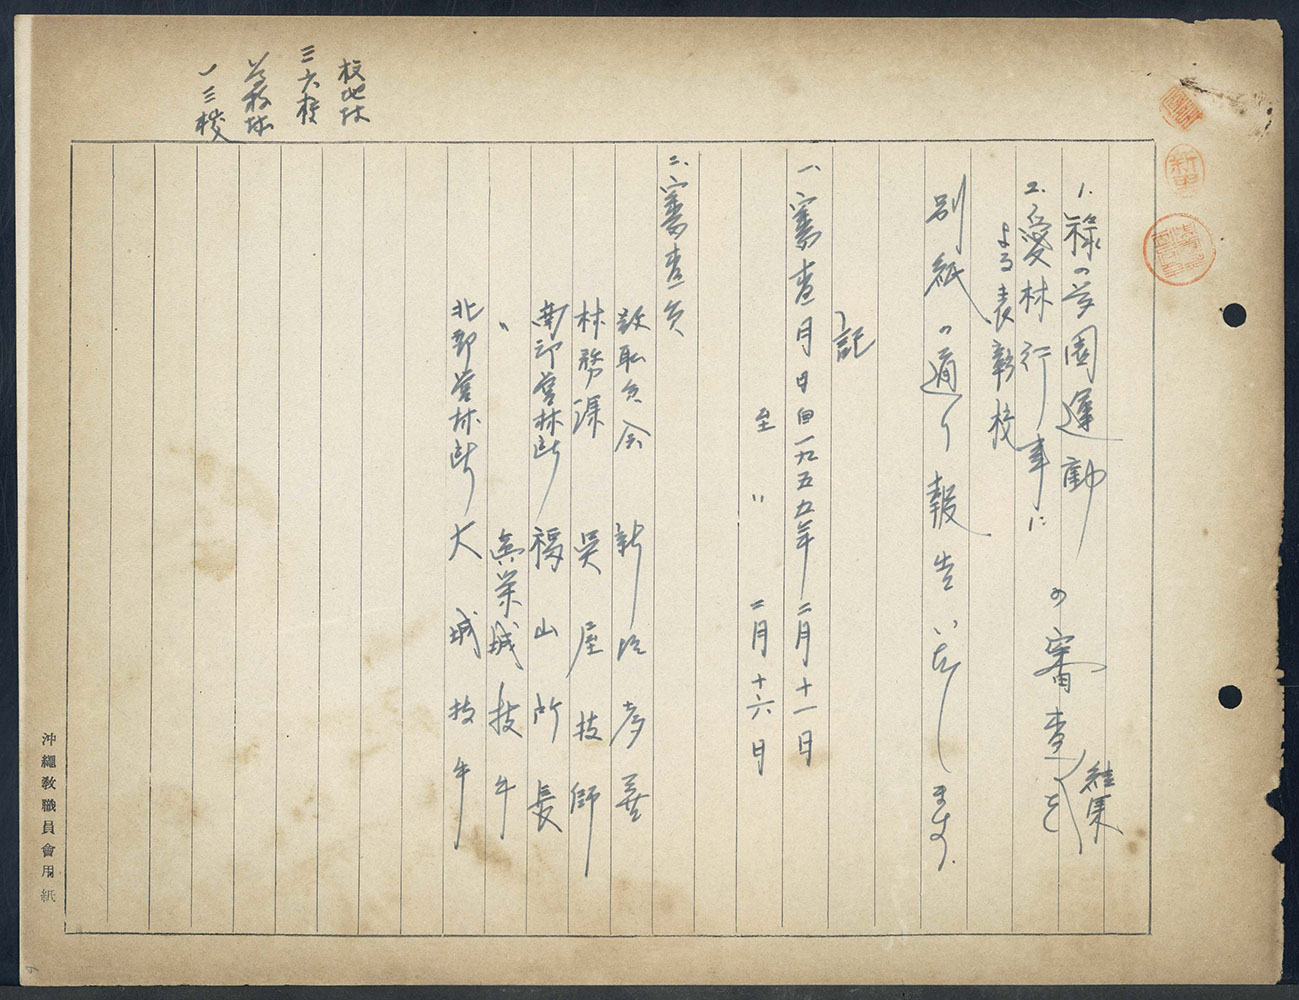 1. 緑の学園運動
2. 愛林行事に
よる表彰校
の審査結果を
別紙の通り報告いたします.
記
一、審査月日自一九五五年二月十一日
至 〃 二月十六日
二、審査員
教職員会 新垣孝善
林務課 呉屋技師
南部営林所 福山所長
〃 真栄城技手
北部営林所 大城技手
校地林
三六校
学校林
一三校
沖繩教職員會用紙